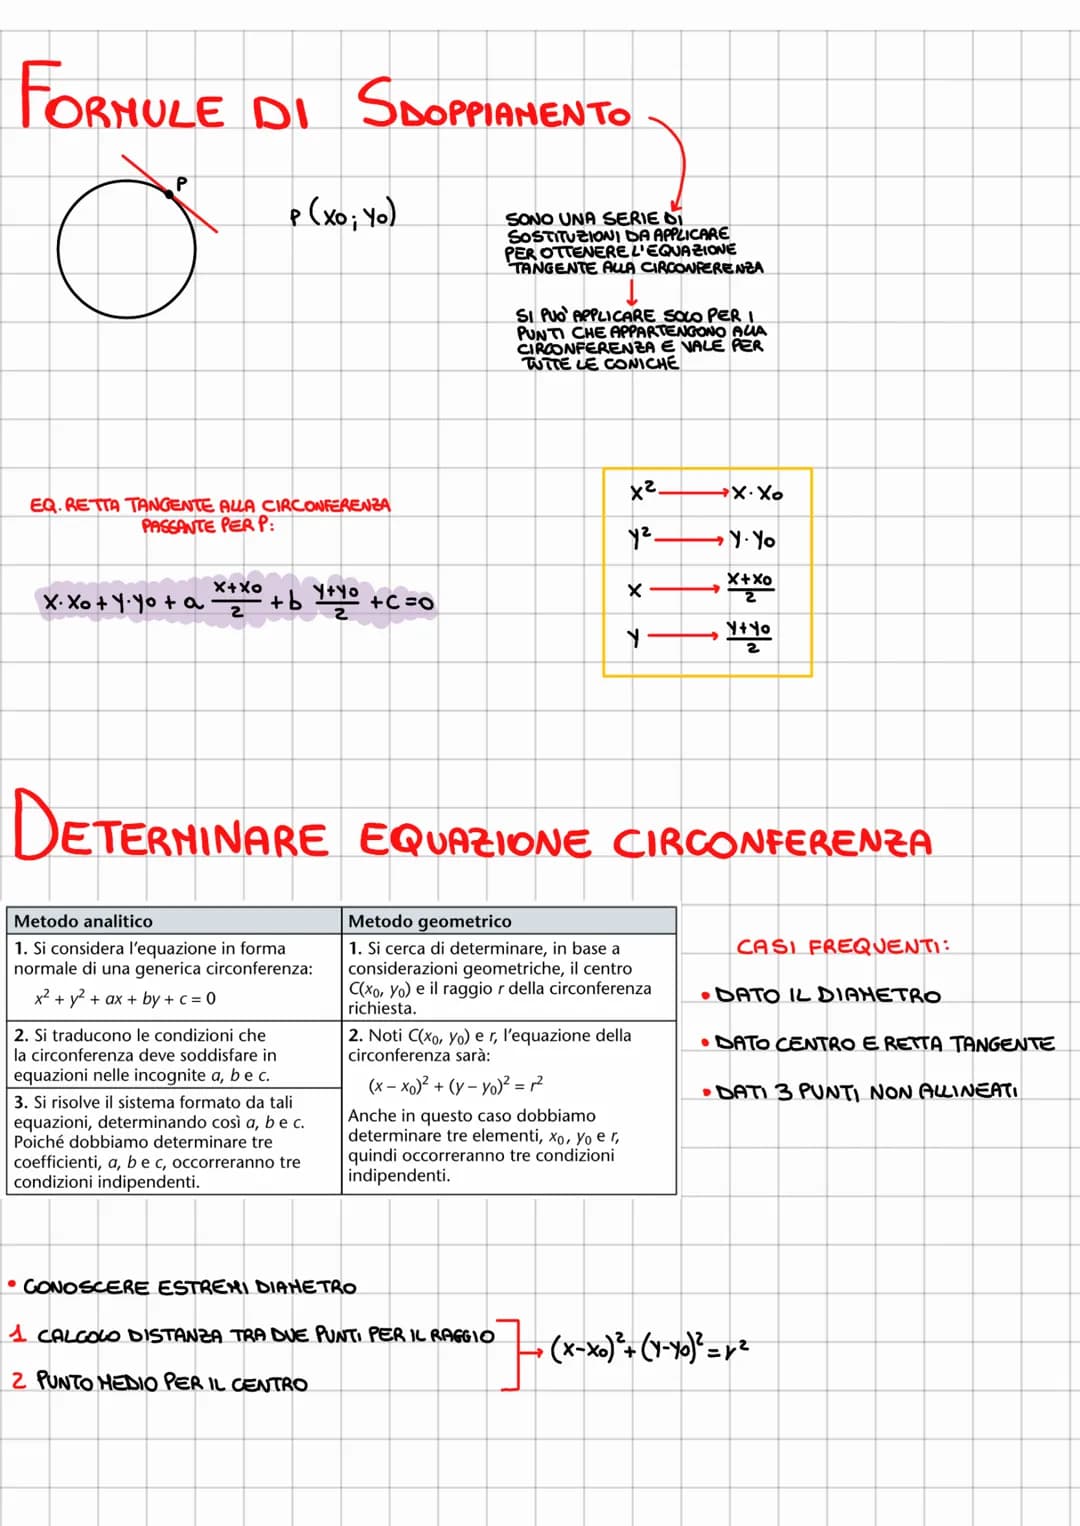 FORMULE DI SDOPPIAMENTO
P
P (x₀; y₀)
SONO UNA SERIE DI
SOSTITUZIONI DA APPLICARE
PER OTTENERE L'EQUAZIONE
TANGENTE ALLA CIRCONFERENZA
↓
SI PUO' APPLICARE SOLO PER I
PUNTI CHE APPARTENGONO ALLA
CIRCONFERENZA E VALE PER
TUTTE LE CONICHE
EQ. RETTA TANGENTE ALLA CIRCONFERENZA
PASSANTE PER P:
x·x₀ + y·y₀ + a (x+x₀)/2 + b (y+y₀)/2 + c = 0
x² → x·x₀
y² → y·y₀
x → (x+x₀)/2
y → (y+y₀)/2
DETERMINARE EQUAZIONE CIRCONFERENZA
Metodo analitico
1. Si considera l'equazione in forma
normale di una generica circonferenza:
x² + y² + ax + by + c = 0
2. Si traducono le condizioni che
la circonferenza deve soddisfare in
equazioni nelle incognite a, b e c.
3. Si risolve il sistema formato da tali
equazioni, determinando così a, b e c.
Poiché dobbiamo determinare tre
coefficienti, a, b e c, occorreranno tre
condizioni indipendenti.
Metodo geometrico
1. Si cerca di determinare, in base a
considerazioni geometriche, il centro
C(x₀, y₀) e il raggio r della circonferenza
richiesta.
2. Noti C(x₀, y₀) e r, l'equazione della
circonferenza sarà:
(x – x₀)² + (y – y₀)² = r²
Anche in questo caso dobbiamo
determinare tre elementi, x₀, y₀ e r,
quindi occorreranno tre condizioni
indipendenti.
CASI FREQUENTI:
• DATO IL DIAMETRO
• DATO CENTRO E RETTA TANGENTE
• DATI 3 PUNTI NON ALLINEATI
• CONOSCERE ESTREMI DIAMETRO
1 CALCOLO DISTANZA TRA DUE PUNTI PER IL RAGGIO
2 PUNTO MEDIO PER IL CENTRO
→ (x-x₀)² + (y-y₀)² = r²